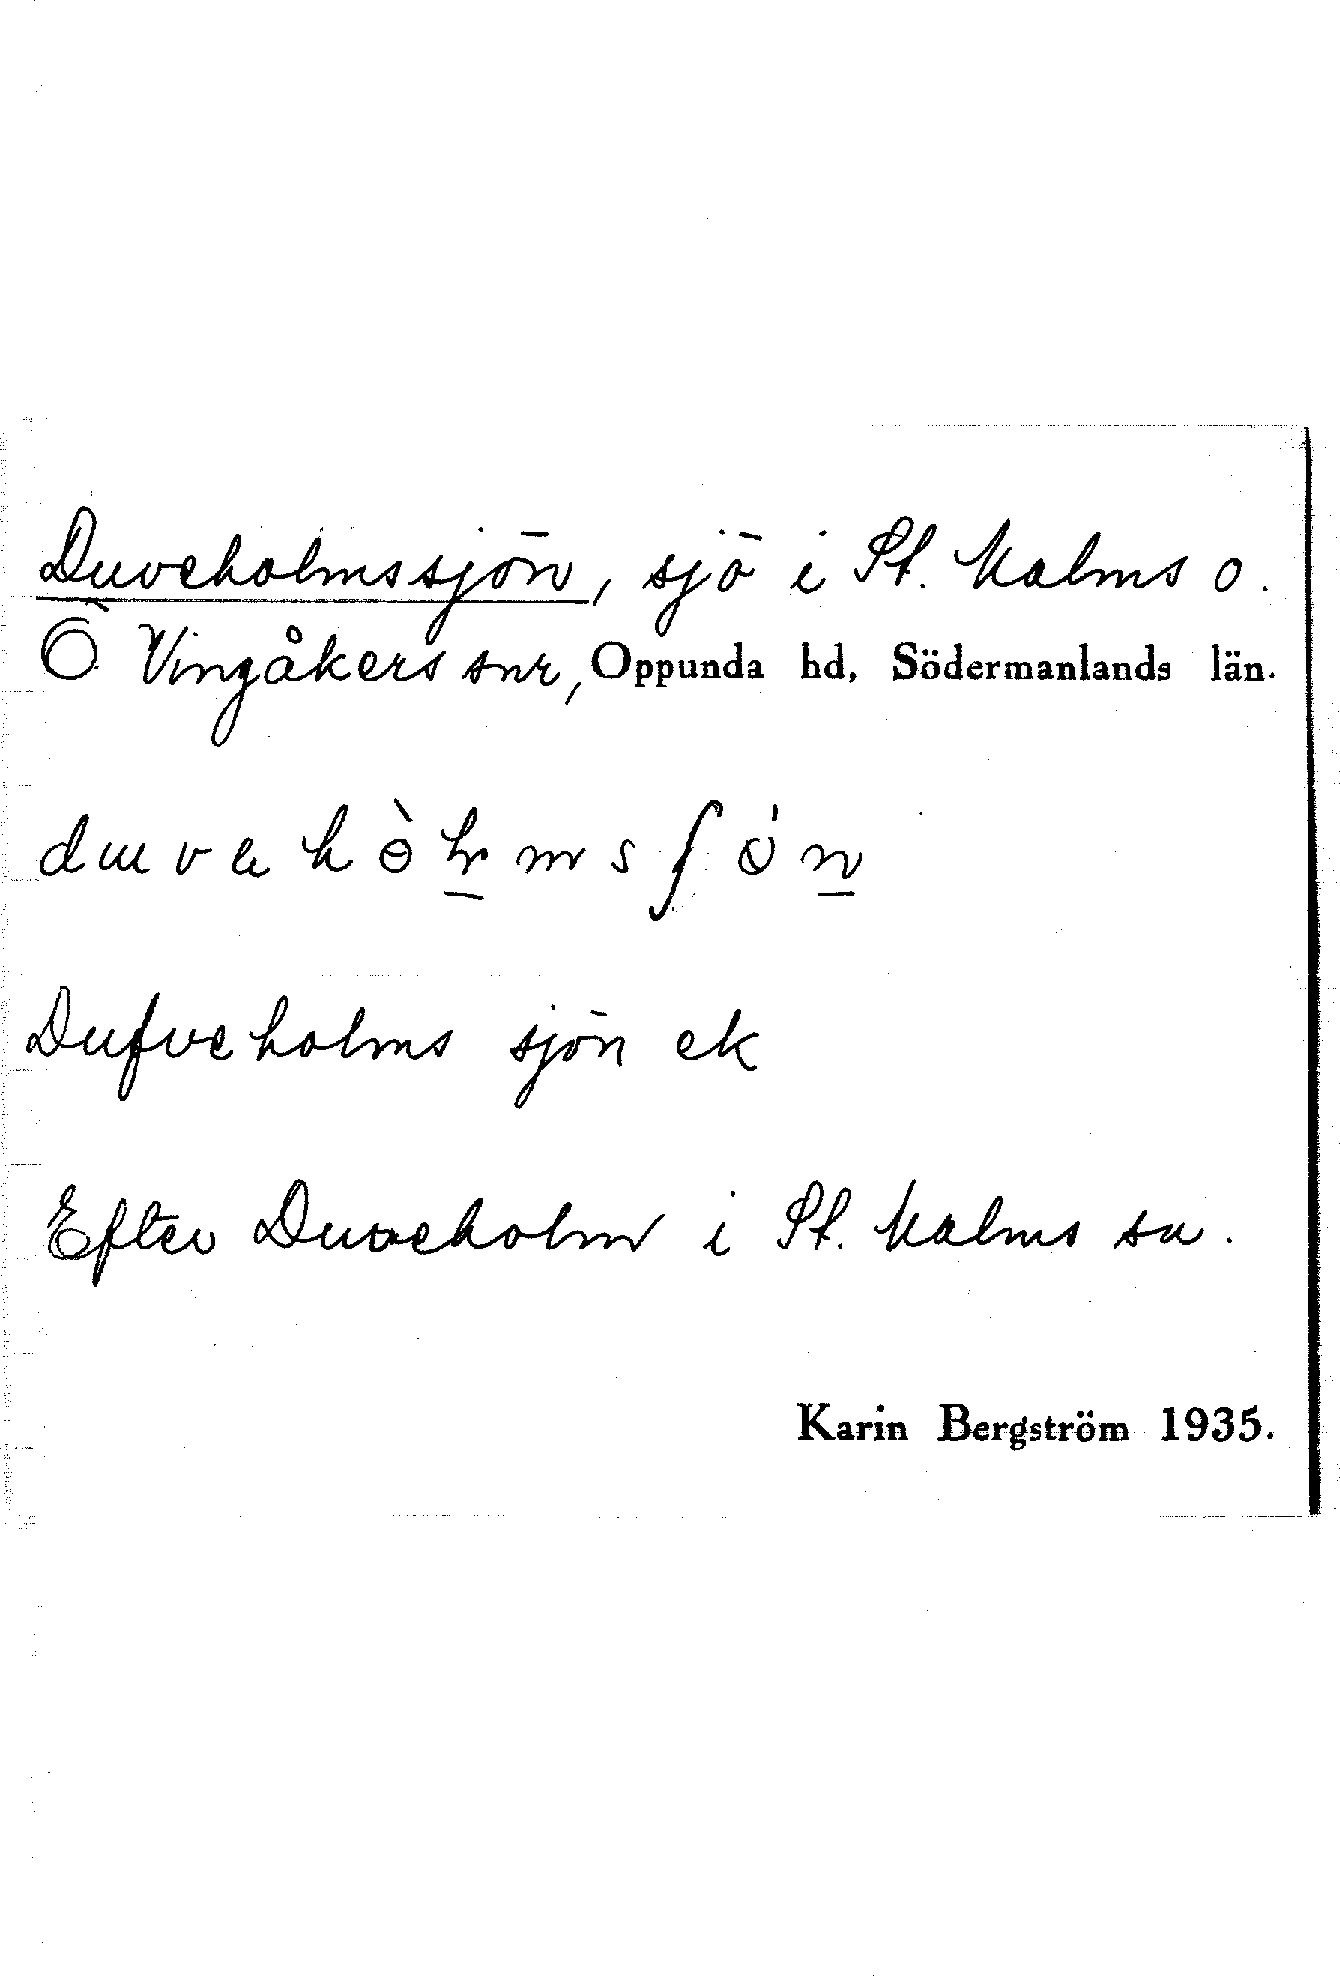 Duveholmssjön, sjö i St. Malms o.
Ö Vingåkers snr, Oppunda hd, Södermanlands län.
Dufveholms sjön ek
Efter Duveholm i St. Malms sn.
Karin Bergström 1935.